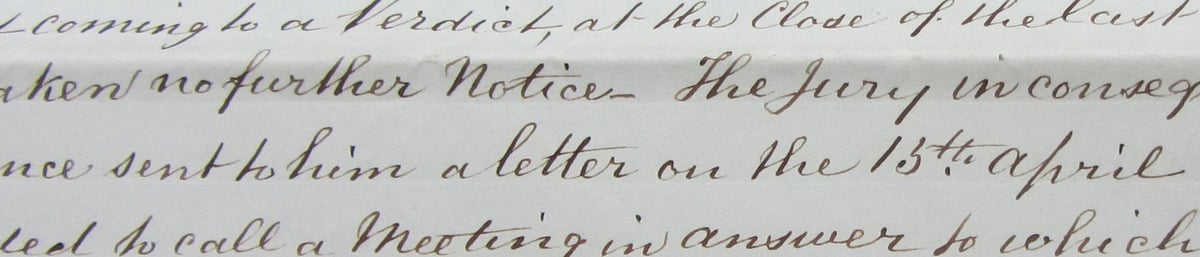 t coming to a Verdict, at the Close of the last
aken no further Notice_ The Jury in conseq
nce sent to him a letter on the 15th. April
ted to call a Meeting in answer to which